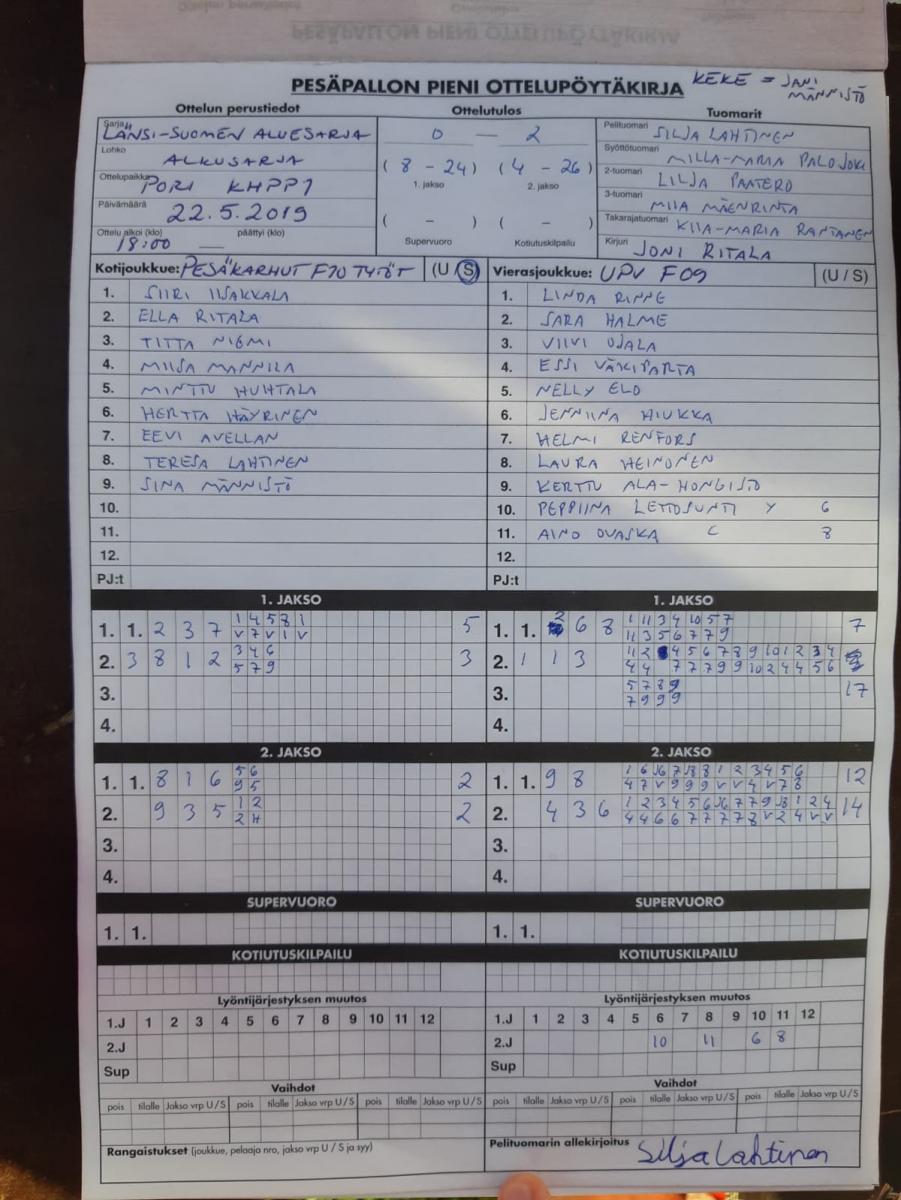 PESÄPALLON PIENI OTTELUPÖYTÄKIRJA
KEKE = JANI MÄNNISTÖ
Ottelun perustiedot
Sarja LÄNSI-SUOMEN ALUESARJA
Lohko ALKUSARJA
Ottelupaikka PORI KHPP1
Päivämäärä 22.5.2019
Ottelu alkoi (klo) päättyi (klo)
18:00 —
Ottelutulos
0 — 2
(8 - 24) (4 - 26)
1. jakso 2. jakso
( - ) ( - )
Supervuoro Kotiutuskilpailu
Tuomarit
Pelituomari SILJA LAHTINEN
Syöttötuomari MILLA-MARIA PALOJOKI
2-tuomari LILJA PAATERO
3-tuomari MIIA MÄENRINTA
Takarajatuomari KIIA-MARIA RANTANEN
Kirjuri JONI RITALA
Kotijoukkue: PESÄKARHUT F10 TYTÖT (U/S)
1. SIIRI IISAKKALA
2. ELLA RITALA
3. TITTA NIEMI
4. MIISA MANNILA
5. MINTTU HUHTALA
6. HERTTA HÄYRINEN
7. EEVI AVELLAN
8. TERESA LAHTINEN
9. SINA MÄNNISTÖ
10.
11.
12.
PJ:t
Vierasjoukkue: UPV F09 (U / S)
1. LINDA RINNE
2. SARA HALME
3. VIIVI OJALA
4. ESSI VÄKIPARTA
5. NELLY ELO
6. JENNIINA HIUKKA
7. HELMI RENFORS
8. LAURA HEINONEN
9. KERTTU ALA-HONGISTO
10. PEPPIINA LEHTOSUNTI Y 6
11. AINO OVASKA C 8
12.
PJ:t
1. JAKSO
1. 1. 2 3 7 1 4 5 8 1 5
V 7 V 1 V
2. 3 8 1 2 3 4 6 3
5 7 9
3.
4.
1. JAKSO
1. 1. 6 8 1 11 3 4 10 5 7 7
11 3 5 6 7 7 9
2. 1 1 3
3. 5 7 8 9 17
7 9 9 9
4.
2. JAKSO
1. 1. 8 1 6 5 6 2
9 5
2. 9 3 5 1 2 2
2 H
3.
4.
2. JAKSO
1. 1. 9 8 12
2. 4 3 6 14
3.
4.
SUPERVUORO
1. 1.
SUPERVUORO
1. 1.
KOTIUTUSKILPAILU
KOTIUTUSKILPAILU
Lyöntijärjestyksen muutos
1.J 1 2 3 4 5 6 7 8 9 10 11 12
2.J
Sup
Lyöntijärjestyksen muutos
1.J 1 2 3 4 5 6 7 8 9 10 11 12
2.J 10 11 6 8
Sup
Vaihdot
pois tilalle Jakso vrp U / S pois tilalle Jakso vrp U / S pois tilalle Jakso vrp U / S
Vaihdot
pois tilalle Jakso vrp U / S pois tilalle Jakso vrp U / S pois tilalle Jakso vrp U / S
Rangaistukset (joukkue, pelaaja nro, jakso vrp U / S ja syy)
Pelituomarin allekirjoitus
Silja Lahtinen